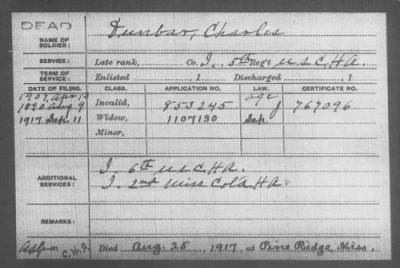 DEAD
NAME OF SOLDIER: Dunbar, Charles
SERVICE: Late rank, Co. I, 5th Reg't U S C H A.
TERM OF SERVICE: Enlisted , 1 Discharged , 1
DATE OF FILING. CLASS. APPLICATION NO. LAW. CERTIFICATE NO.
1907, Apr
1890 Aug 9 Invalid, 853245 age 767096
1917 Sep. 11 Widow, 1107130 Sep.
Minor,
ADDITIONAL SERVICES: I 6th U S C H A.
I. 2nd Miss Col'd H A.
REMARKS:
C.H.
Died Aug. 25, 1917, at Pine Ridge Miss.